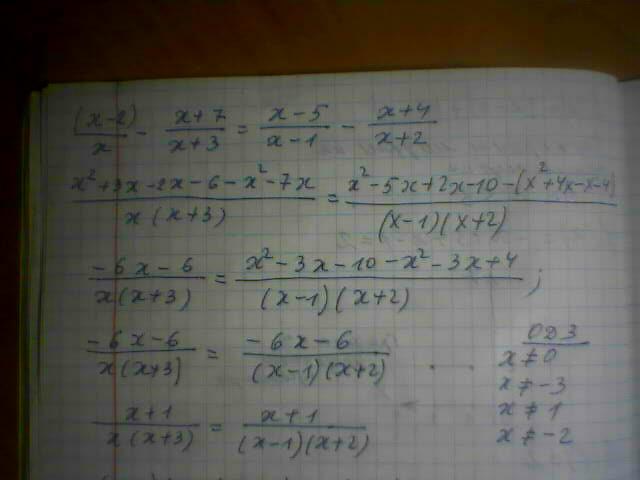 (x-2)/x - (x+7)/(x+3) = (x-5)/(x-1) - (x+4)/(x+2)
(x²+3x-2x-6-x²-7x)/(x(x+3)) = (x²-5x+2x-10-(x²+4x-x-4))/((x-1)(x+2))
(-6x-6)/(x(x+3)) = (x²-3x-10-x²-3x+4)/((x-1)(x+2));
(-6x-6)/(x(x+3)) = (-6x-6)/((x-1)(x+2))
(x+1)/(x(x+3)) = (x+1)/((x-1)(x+2))
ОДЗ
x≠0
x≠-3
x≠1
x≠-2